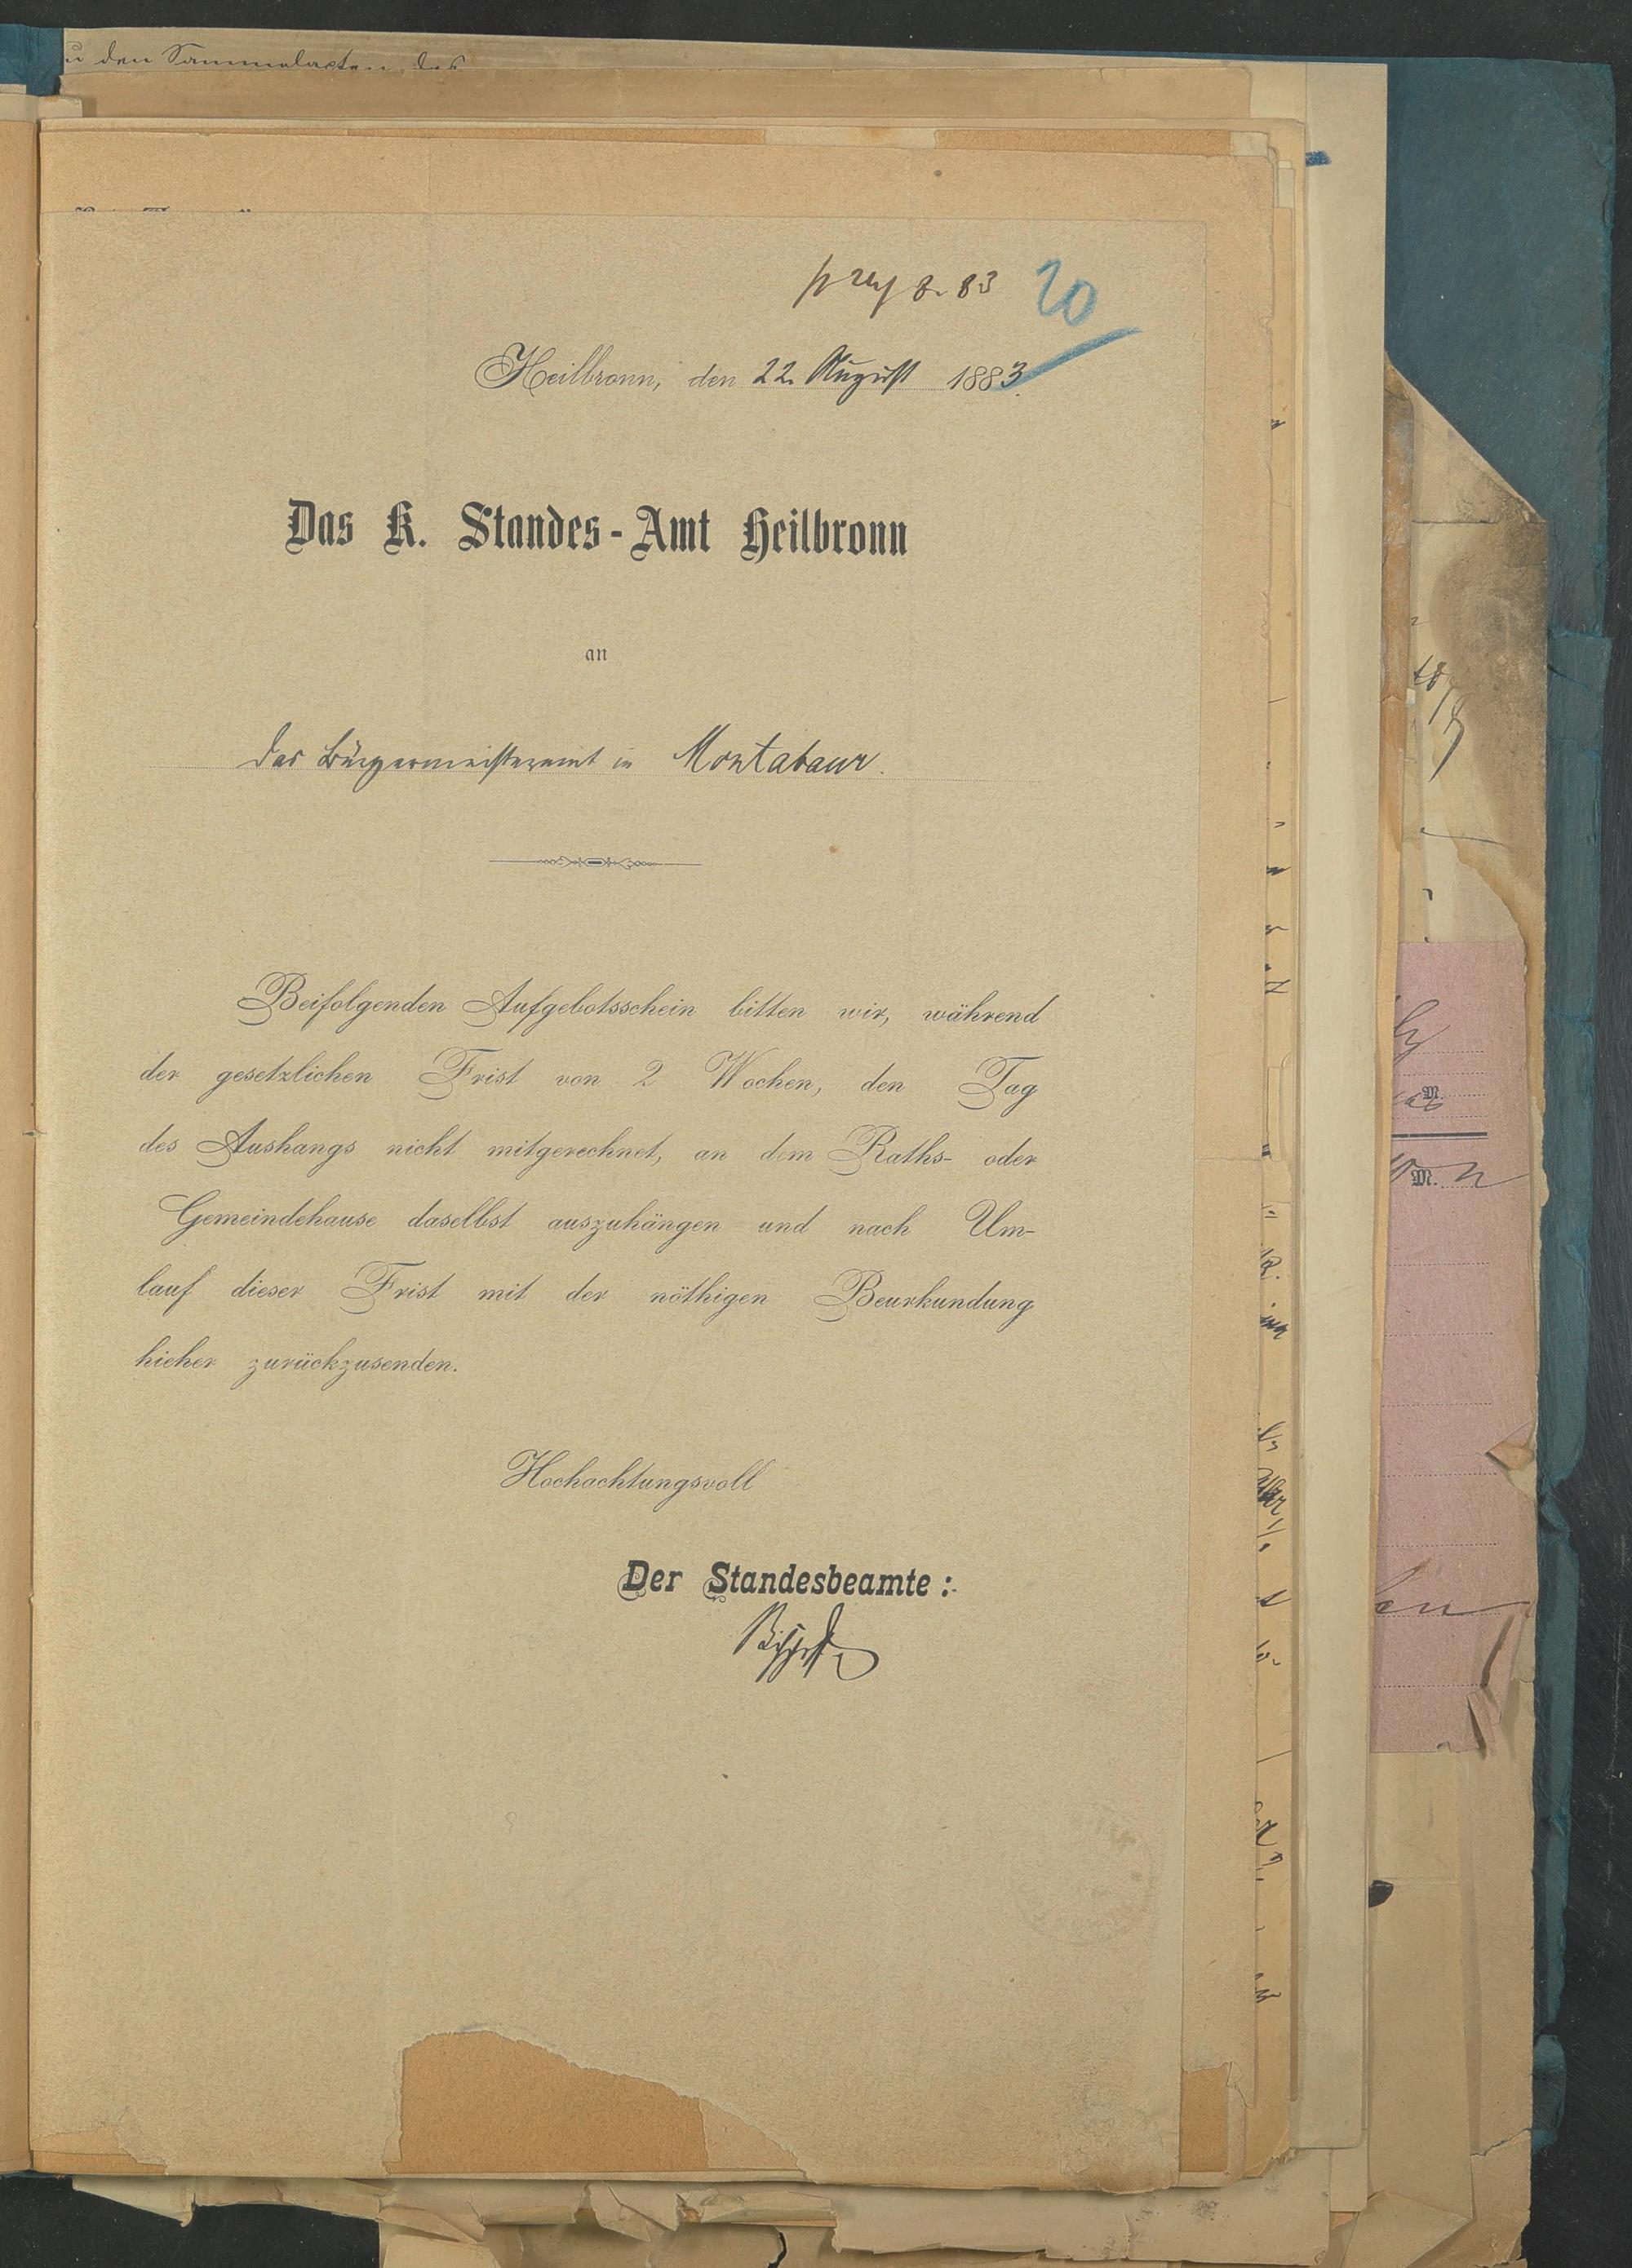 den Sammelacten des
20
Heilbronn, den 22. August 1883.
Das K. Standes-Amt Heilbronn
an
das Bürgermeisteramt in Montabaur.
Beifolgenden Aufgebotsschein bitten wir, während
der gesetzlichen Frist von 2 Wochen, den Tag
des Aushangs nicht mitgerechnet, an dem Raths- oder
Gemeindehause daselbst auszuhängen und nach Um-
lauf dieser Frist mit der nöthigen Beurkundung
hieher zurückzusenden.
Hochachtungsvoll
Der Standesbeamte:
M.
M.